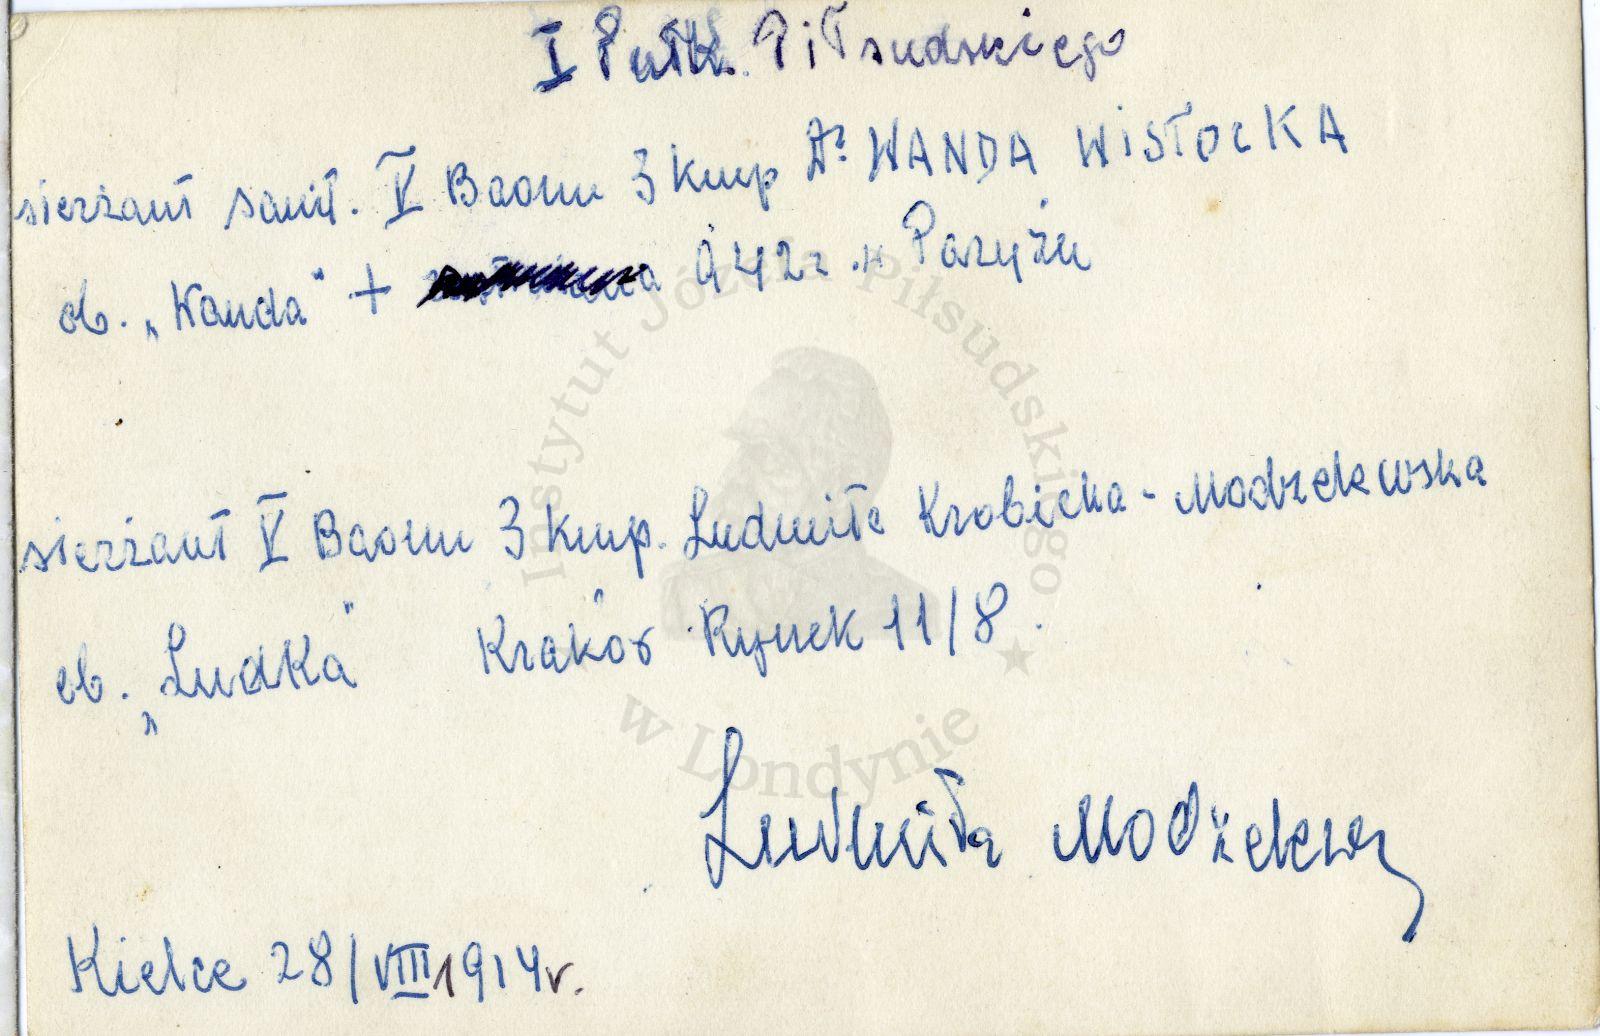 I Pułk. Piłsudskiego
sierżant sanit. V Baonu 3 kmp Dr WANDA WISŁOCKA
ob. „Wanda" + 942 r. w Paryżu
sierżant V Baonu 3 kmp. Ludmiła Krobicka-Modzelewska
ob. „Ludka" Kraków Rynek 11/8.
Ludmiła Modzelewska
Kielce 28/VIII 1914 r.
Instytut Józefa Piłsudskiego
w Londynie